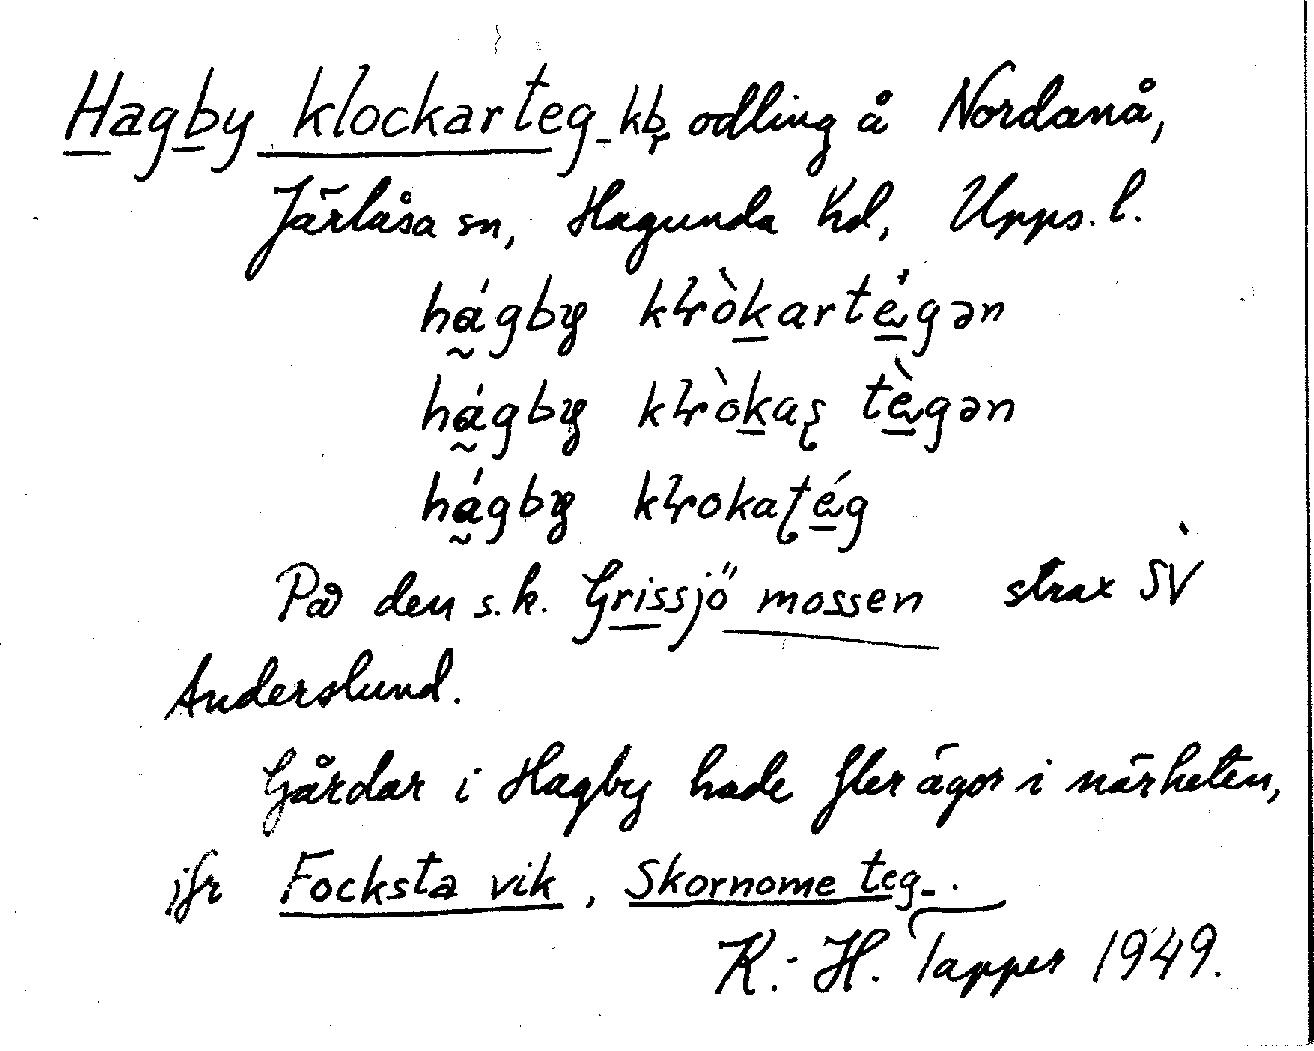 Hagby klockarteg- kbr odling å Nordanå,
Järlåsa sn, Hagunda hd, Upps. l.
hág̀by kɬòkartè̀gən
hágby kɬòkaʂ tègən
hágby kɬokaʈég
På den s.k. Grissjömossen strax SV
Anderslund.
Gårdar i Hagby hade fler ägor i närheten,
jfr Focksta vik, Skornome teg-.
K.-H. Tapper 1949.